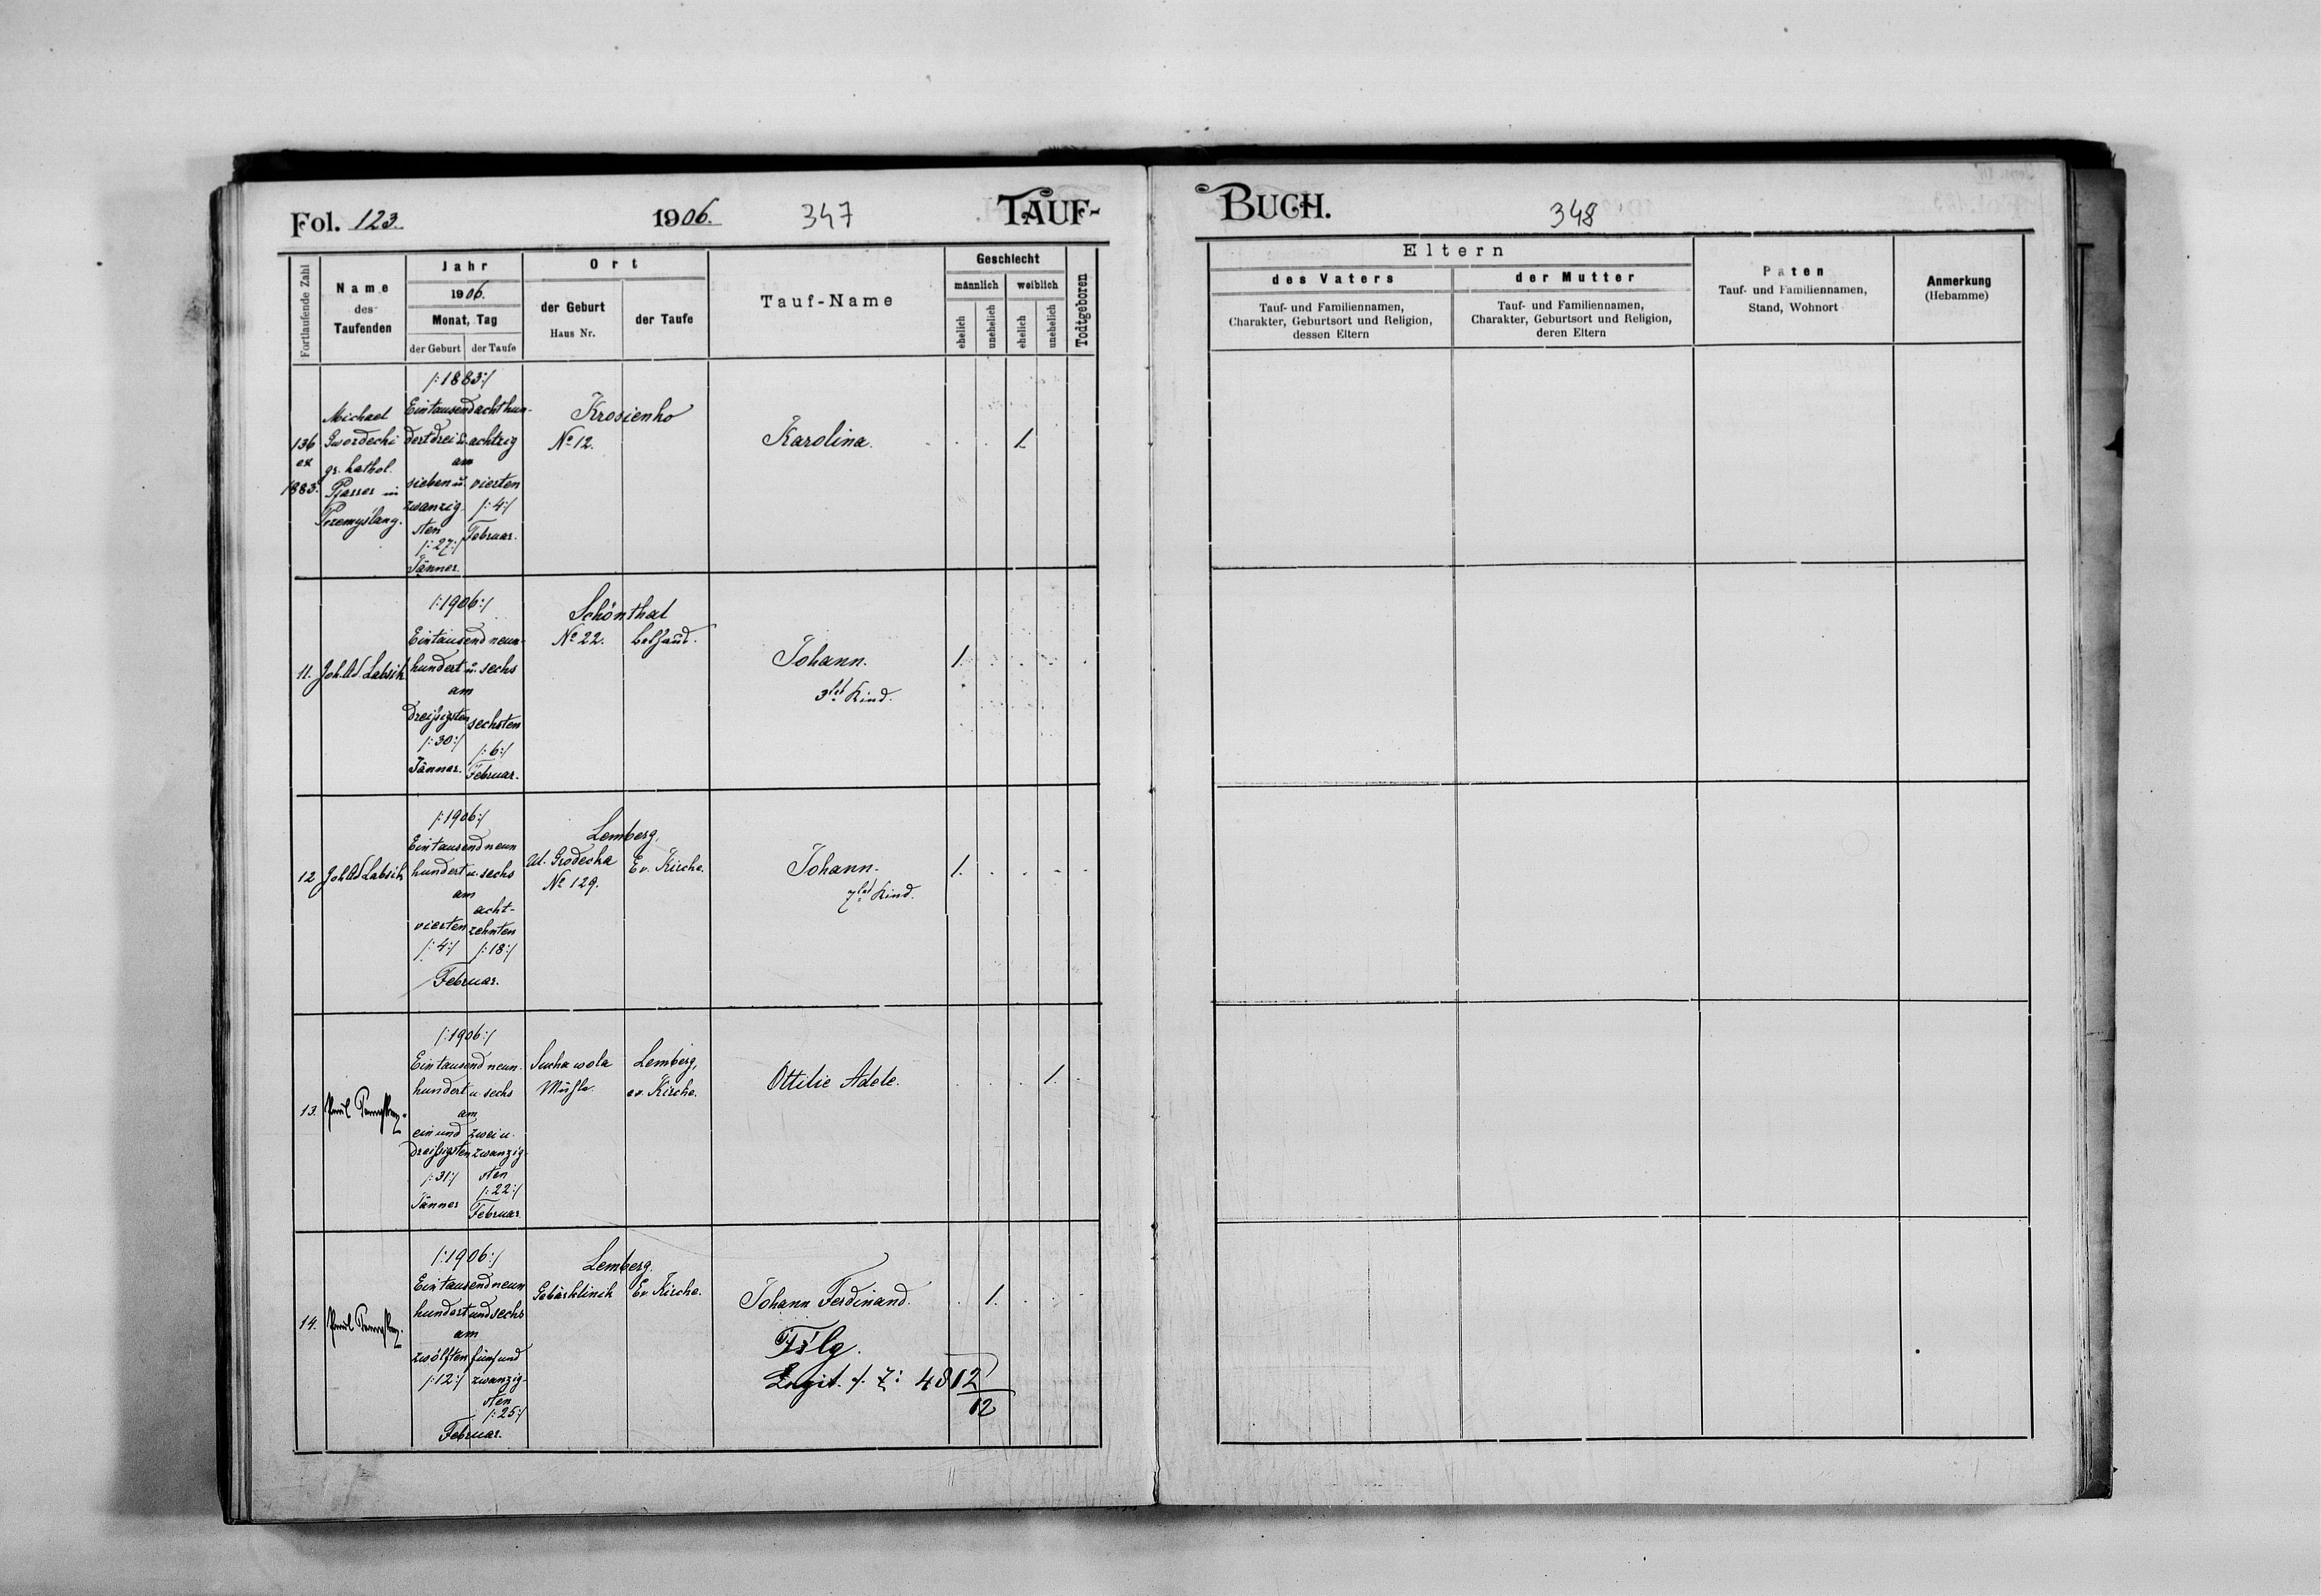 Fol. 123.
1906.
347
TAUF-
Fortlaufende Zahl
Name
des
Taufenden
Jahr
1906.
Monat, Tag
der Geburt
der Taufe
Ort
der Geburt
Haus Nr.
der Taufe
Tauf-Name
Geschlecht
männlich
weiblich
ehelich
unehelich
ehelich
unehelich
Todtgeboren
136
ex
1883.
Michael
Gwozdecki
gr. kathol.
Pfarrer in
/:1883:/
Eintausend acht hun-
dert drei u. achtzig
am
sieben u.
zwanzig
sten
/:27:/
Jänner
vierten
/:4:/
Februar.
Krosienko
No 12.
Karolina.
1.
11.
Joh. Ad. Labsik
/:1906:/
Eintausend neun-
hundert u. sechs
am
dreißigsten
/:30:/
Jänner.
sechsten
/:6:/
Februar.
Schönthal
No 22.
Bethaus.
Johann.
3tes Kind.
1.
12
Joh. Ad. Labsik
/:1906:/
Eintausend neun
hundert u. sechs
am
vierten
/:4:/
acht-
zehnten
/:18:/
Februar.
Lemberg.
Ul. Grodecka
No 129.
Ev. Kirche.
Johann.
7tes Kind.
1.
13.
/:1906:/
Eintausend neun.
hundert u. sechs
am
ein und
dreißigsten
/:31:/
Jänner
zwei u.
zwanzig-
sten
/:22:/
Februar
Sucha wola
Mühle.
Lemberg,
ev. Kirche.
Ottilie Adele.
1.
14.
/:1906:/
Eintausend neun
hundert und sechs
am
zwölften
/:12:/
fünf und
zwanzig-
sten
/:25:/
Februar.
Lemberg.
Gebärklinik
Ev. Kirche.
Johann Ferdinand.
1.
Legit.
4812
12
BUCH.
348
Eltern
des Vaters
Tauf- und Familiennamen,
Charakter, Geburtsort und Religion,
dessen Eltern
der Mutter
Tauf- und Familiennamen,
Charakter, Geburtsort und Religion,
deren Eltern
Paten
Tauf- und Familiennamen,
Stand, Wohnort
Anmerkung
(Hebamme)